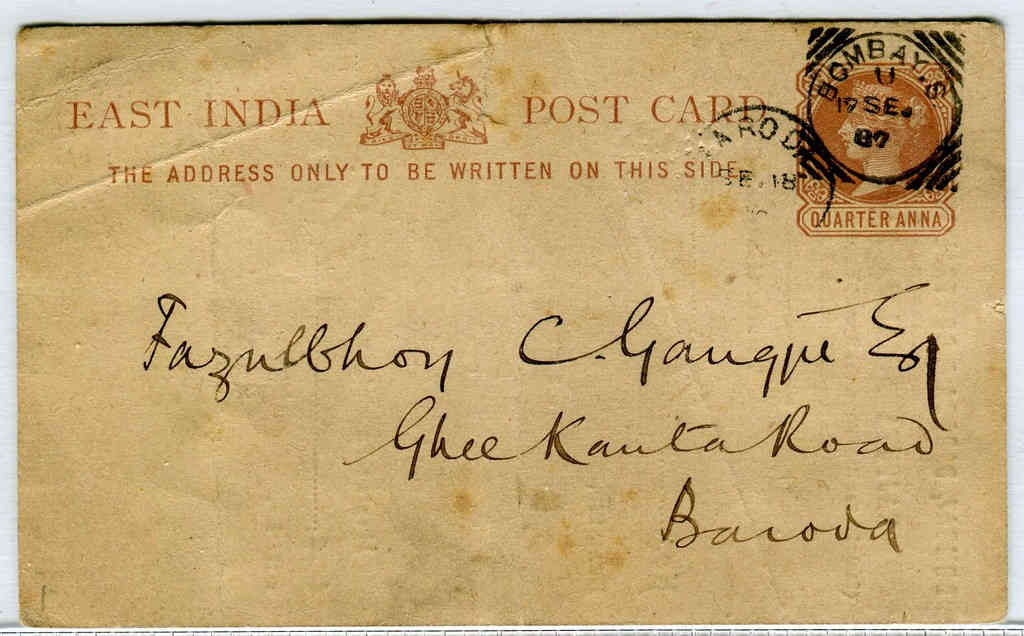 EAST INDIA POST CARD
THE ADDRESS ONLY TO BE WRITTEN ON THIS SIDE
BOMBAY. S
17 SE.
87
SE. 18
QUARTER ANNA
Fazulbhoy C. Gangji Esq
Ghee Kanta Road
Baroda